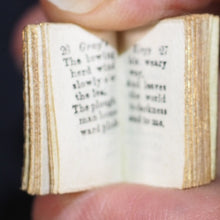 26 Gray's
The lowing
herd wind
slowly o'er
the lea,
The plough-
man home-
ward plods
Elegy 27
his weary
way,
And leaves
the world
to darkness
and to me.